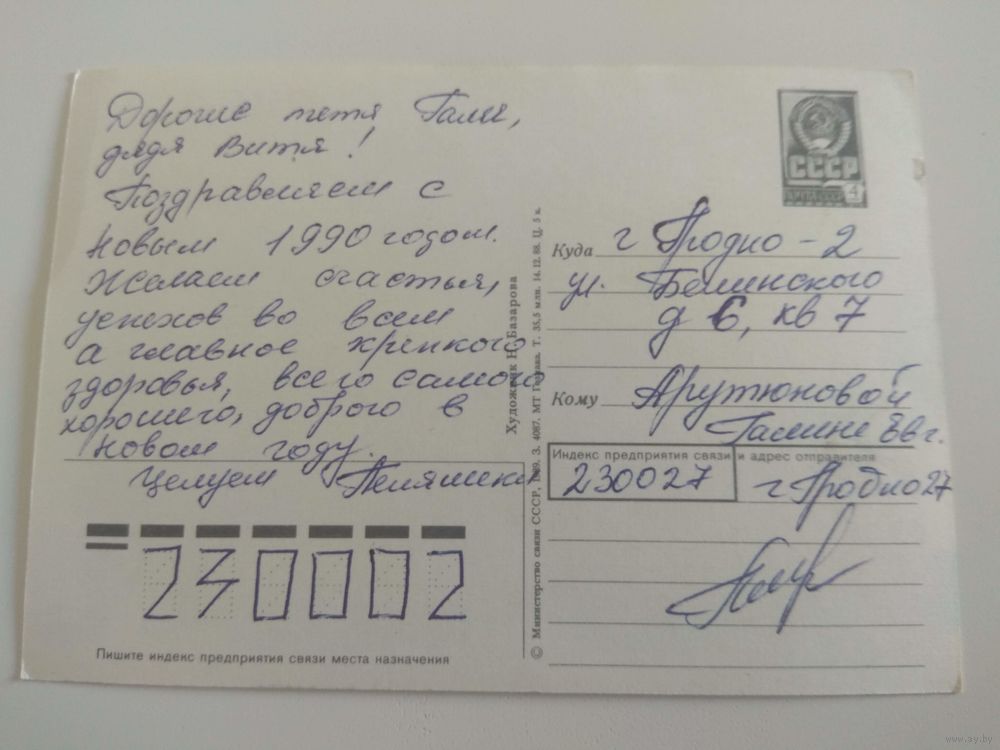 Дорогие тетя Галя,
дядя Витя!
Поздравляем с
Новым 1990 годом.
Желаем счастья,
успехов во всем
а главное крепкого
здоровья, всего самого
хорошего, доброго в
Новом году.
Целуем
Пишите индекс предприятия связи места назначения
230002
Художник Н. Базарова
© Министерство связи СССР, 1989. З. 4087. МТ Гознака. Т. 35,5 млн. 14.12.88. Ц. 5 к.
СССР
4
Куда г Гродно-2
ул. Белинского
д 6, кв 7
Кому Арутюновой
Галине Евг.
Индекс предприятия связи и адрес отправителя
230027 г Гродно 27
www.ay.by